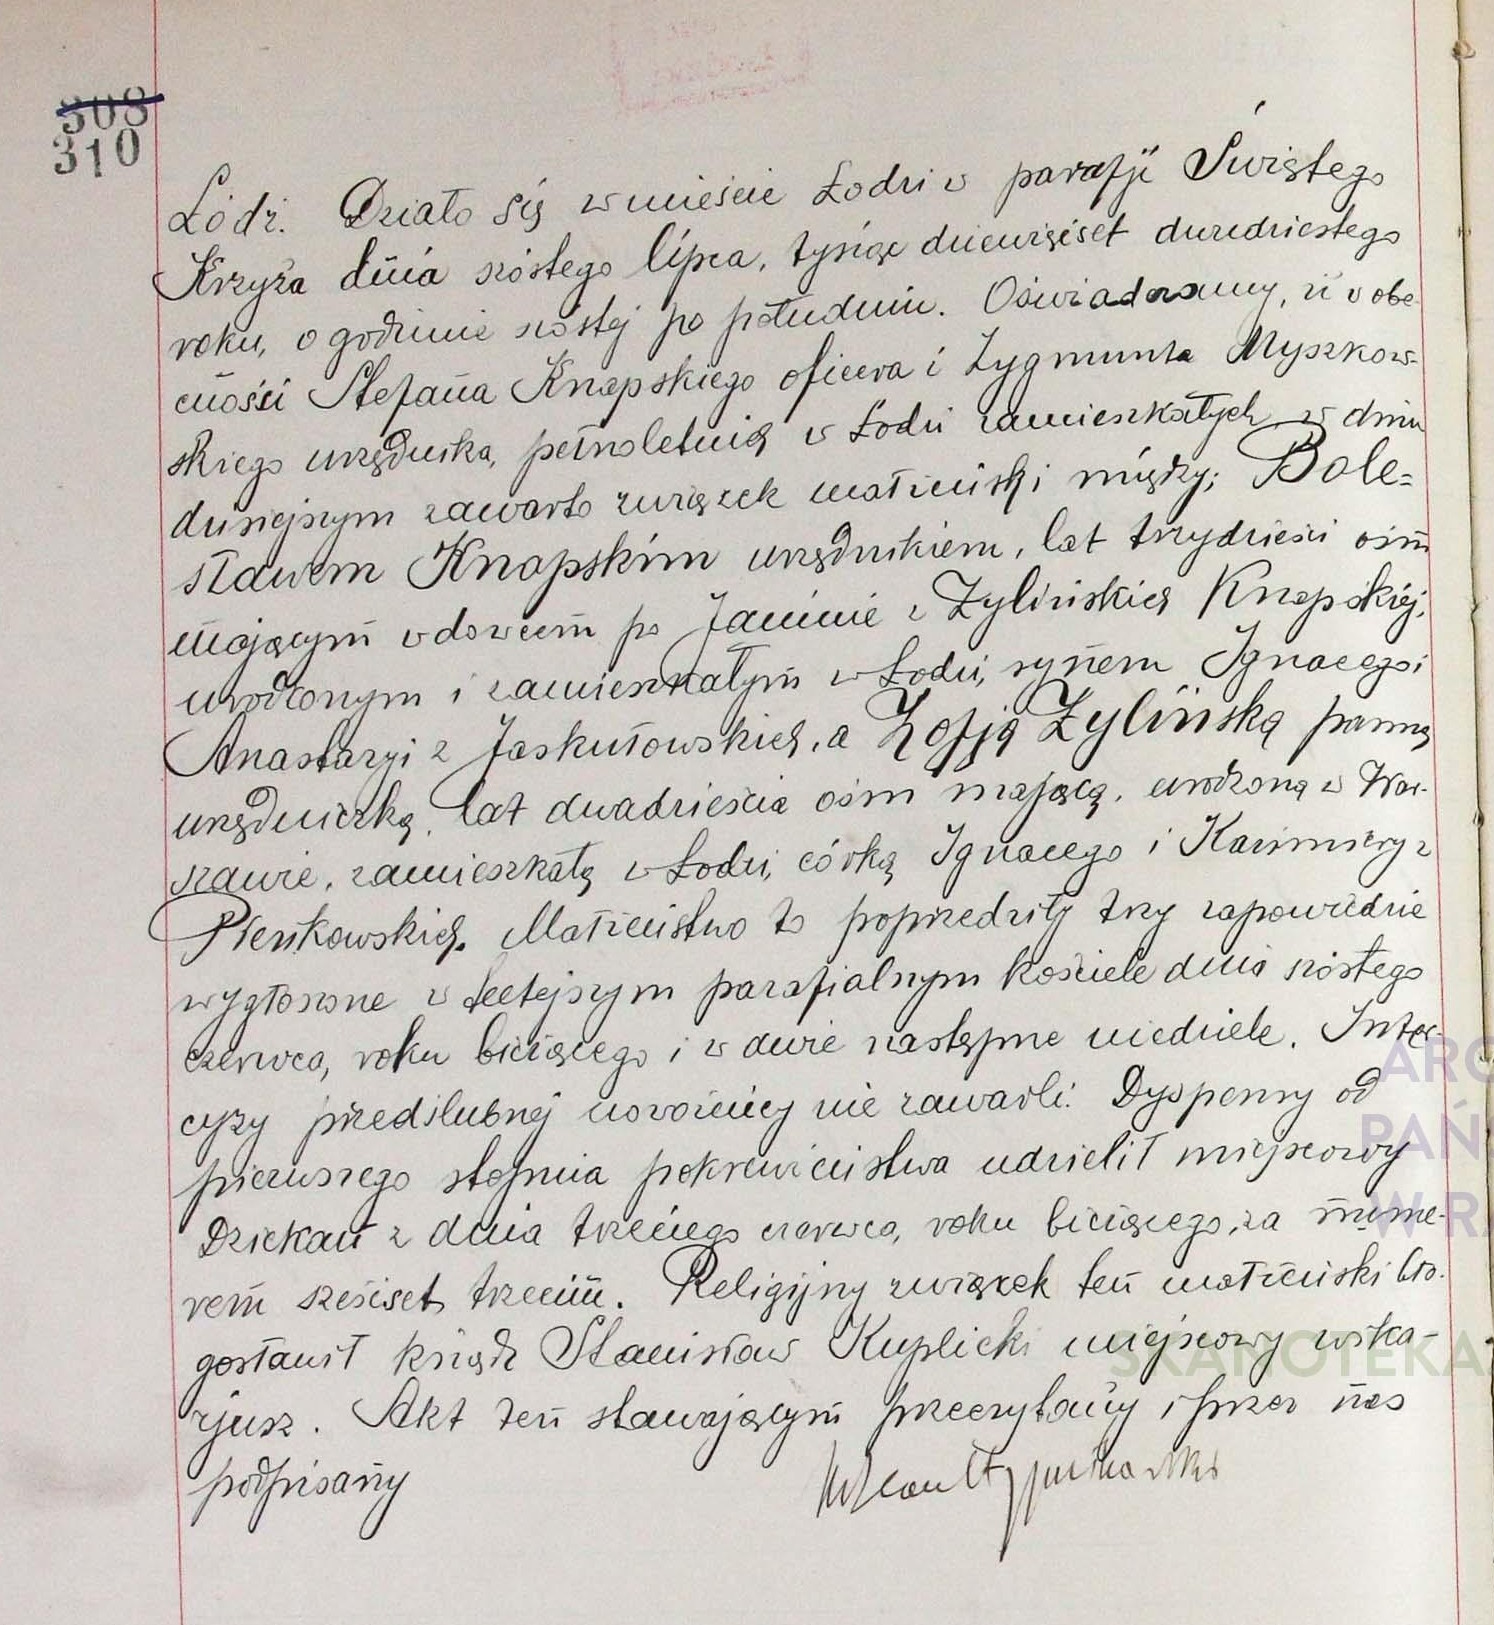 308
310
Łódź. Działo się w mieście Łodzi w parafji Świętego
Krzyża dnia szóstego lipca, tysiąc dziewięćset dwudziestego
roku, o godzinie szóstej po południu. Oświadczamy, iż w obe-
cności Stefana Knapskiego oficera i Zygmunta Myszkow-
skiego urzędnika, pełnoletnich w Łodzi zamieszkałych w dniu
dzisiejszym zawarto związek małżeński między: Bole-
sławem Knapskim urzędnikiem, lat trzydzieści ośm
mającym wdowcem po Janinie z Żylińskich Knapskiej,
urodzonym i zamieszkałym w Łodzi, synem Ignacego i
Anastazyi z Jaskułowskich, a Zofją Żylińską panną
urzędniczką, lat dwadzieścia ośm mającą, urodzoną w War-
szawie, zamieszkałą w Łodzi, córką Ignacego i Kazimiery z
Pieńkowskich. Małżeństwo to poprzedziły trzy zapowiedzie
wygłoszone w tutejszym parafialnym kościele dnia szóstego
czerwca, roku bieżącego i w dwie następne niedziele. Inter-
cyzy przedślubnej nowożeńcy nie zawarli. Dyspensy od
pierwszego stopnia pokrewieństwa udzielił miejscowy
Dziekan z dnia trzeciego czerwca, roku bieżącego, za nume-
rem sześćset trzecim. Religijny związek ten małżeński bło-
gosławił ksiądz Stanisław Kuplicki miejscowy wika-
rjusz. Akt ten stawającym przeczytany i przez nas
podpisany
SKANOTEKA